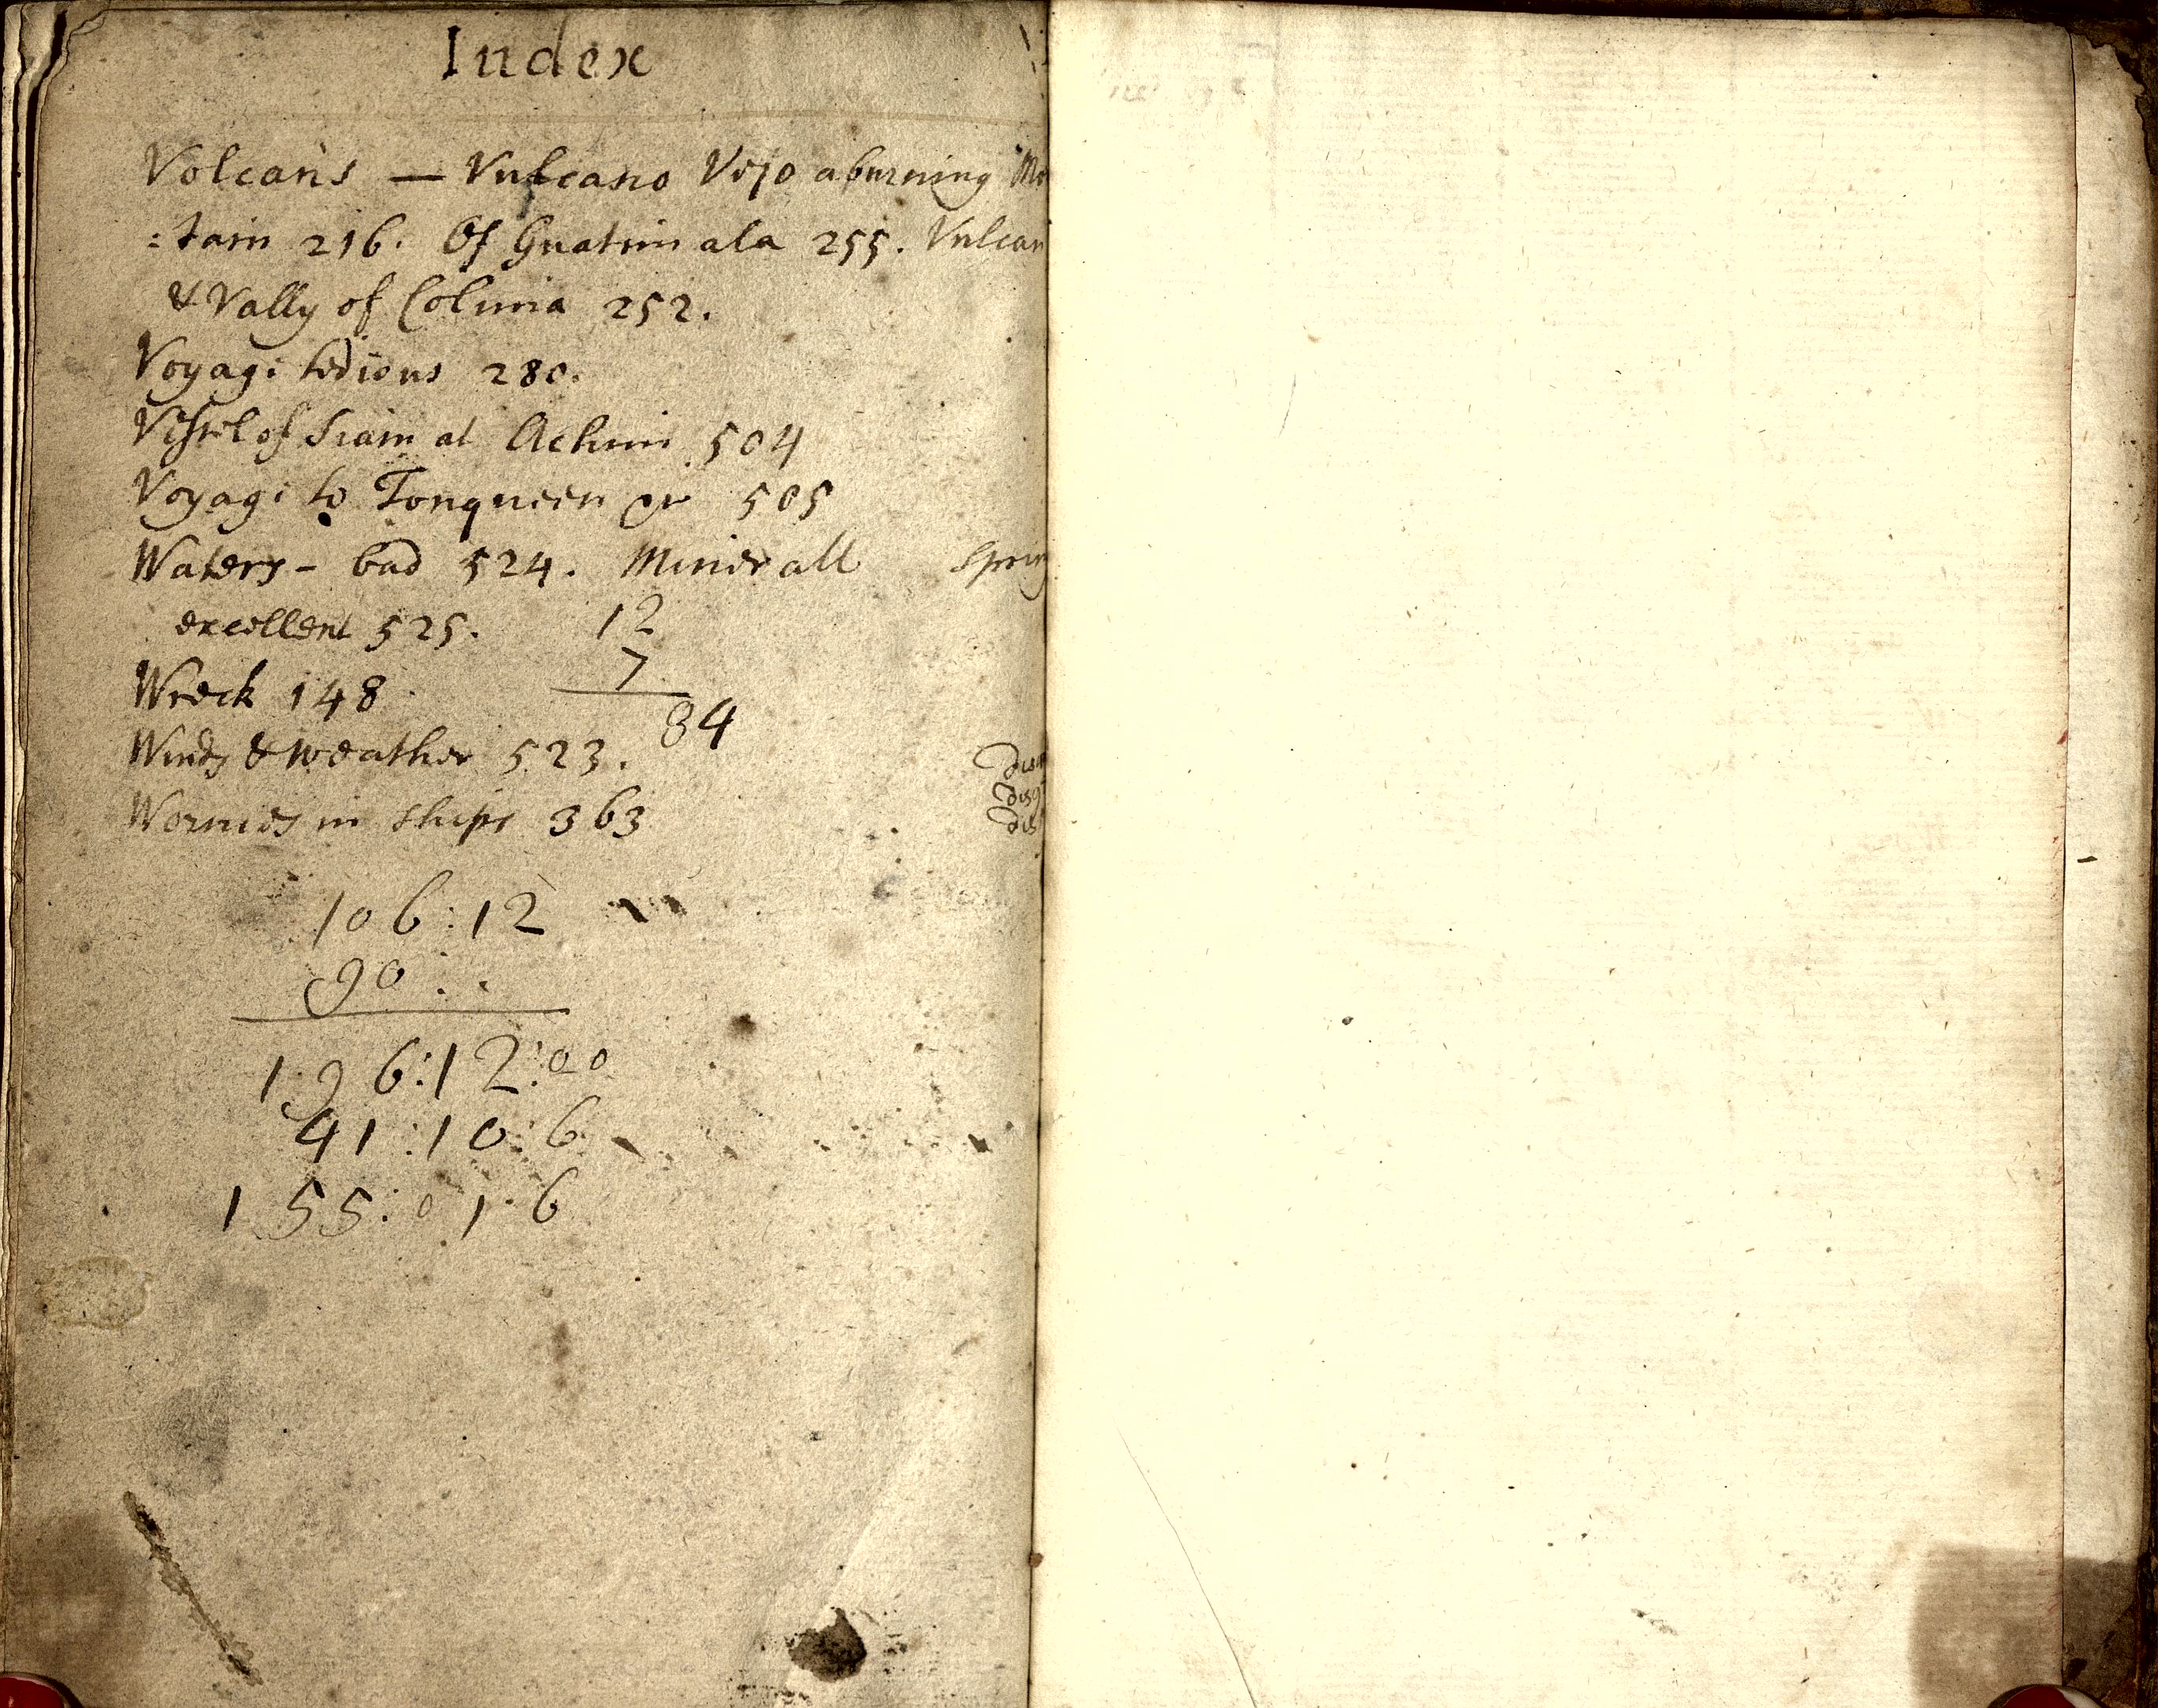 Index
Volcans — Vulcano Vejo a burning
:tain 216. Of Guatimala 255. Vulcan
& Vally of Colima 252.
Voyage tedious 280.
Vessel of Siam at Achin 504
Voyage to Tonqueen 505
Waters - bad 524. Minerall Spring
excellent 525.
12
7
84
Wreck 148
Winds & Weather 523.
Wormes in Ships 363
106:12
90: .
196:12:00
41:10:6
155:01:6